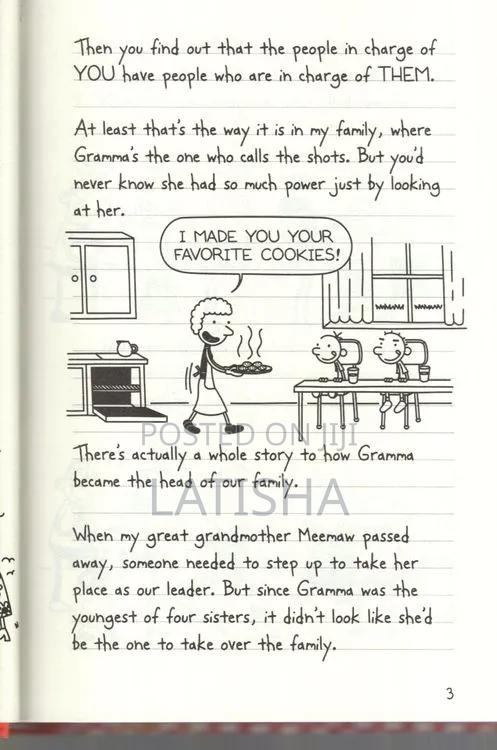 Then you find out that the people in charge of
YOU have people who are in charge of THEM.
At least that's the way it is in my family, where
Gramma's the one who calls the shots. But you'd
never know she had so much power just by looking
at her.
I MADE YOU YOUR
FAVORITE COOKIES!
There's actually a whole story to how Gramma
became the head of our family.
POSTED ON JIJI
LATISHA
When my great grandmother Meemaw passed
away, someone needed to step up to take her
place as our leader. But since Gramma was the
youngest of four sisters, it didn't look like she'd
be the one to take over the family.
3